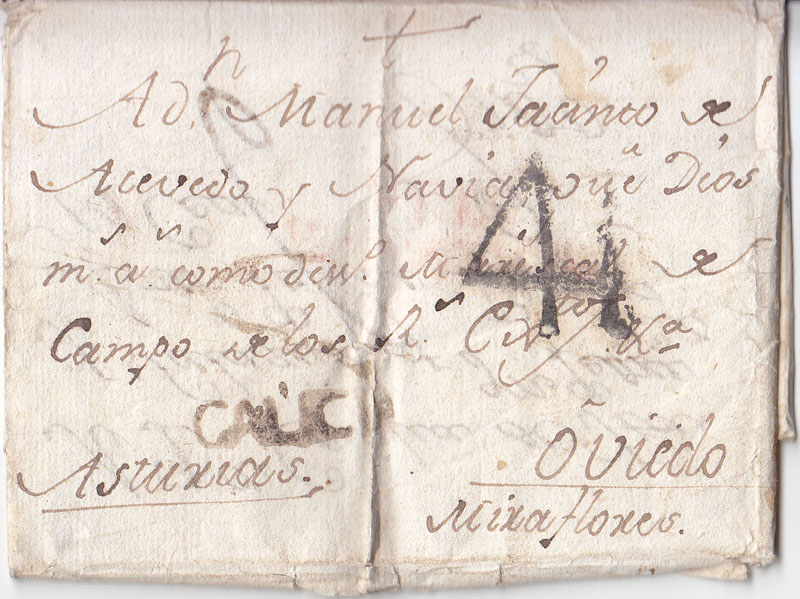 A Dn. Manuel Jacinto de
Acevedo y Navia, que Dios
ms. as. como deso. Mariscal de
Campo de los Rs. Extos. &a
4
GALIC
Asturias. Oviedo
Miraflores.